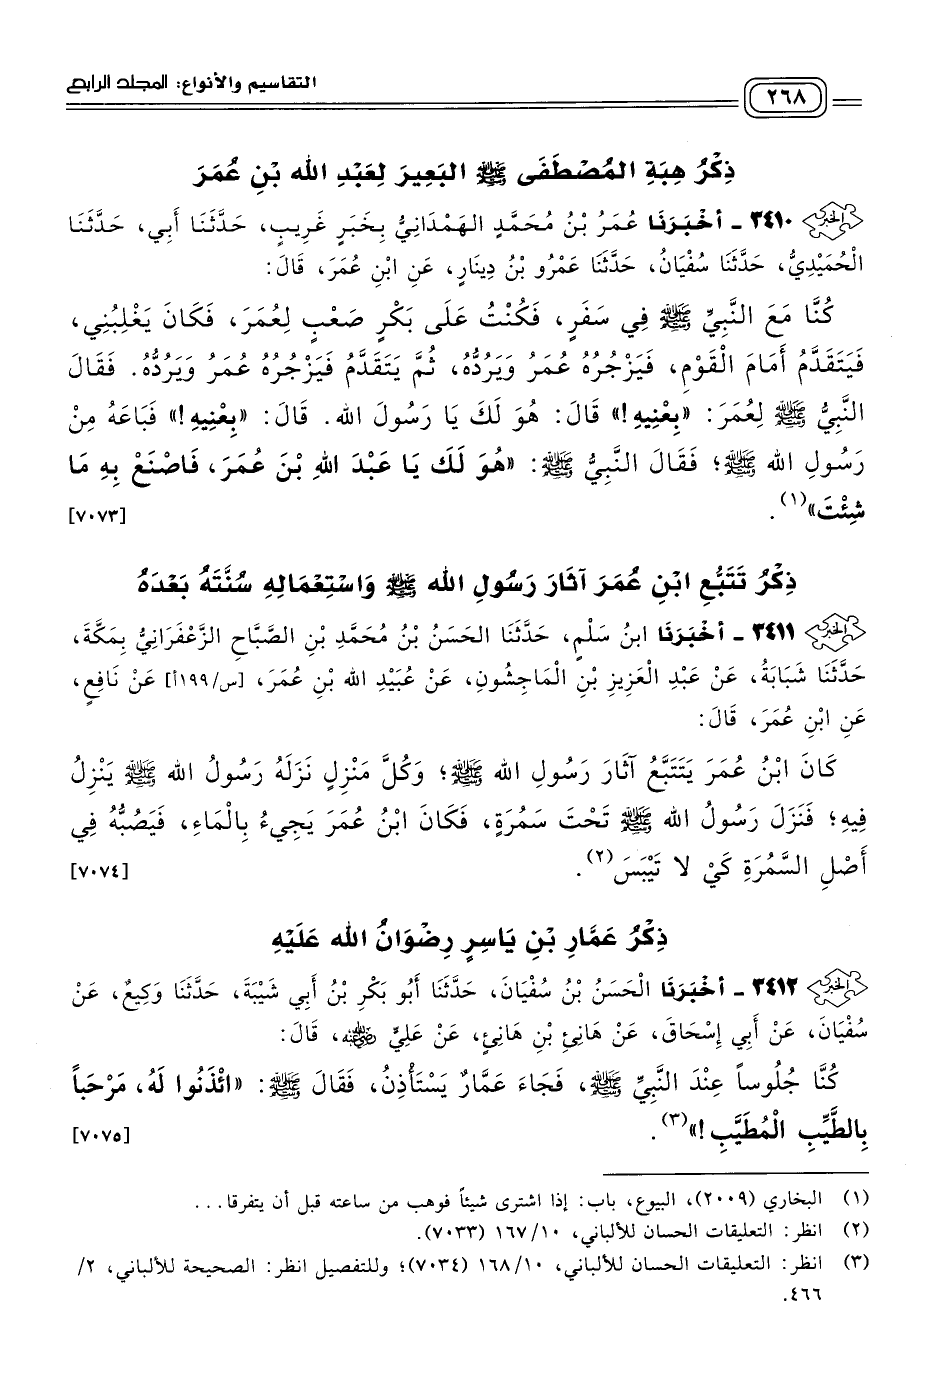 ٢٦٨
التقاسيم والأنواع: المجلد الرابع
ذِكْرُ هِبَةِ المُصْطَفَى ﷺ البَعِيرَ لِعَبْدِ الله بْنِ عُمَرَ
الخبر ٣٤١٠ ـ أَخْبَرَنَا عُمَرُ بْنُ مُحَمَّدٍ الهَمْدَانِيُّ بِخَبَرٍ غَرِيبٍ، حَدَّثَنَا أَبي، حَدَّثَنَا
الْحُمَيْدِيُّ، حَدَّثَنَا سُفْيَانُ، حَدَّثَنَا عَمْرُو بْنُ دِينَارٍ، عَنِ ابْنِ عُمَرَ، قَالَ:
كُنَّا مَعَ النَّبِيِّ ﷺ فِي سَفَرٍ، فَكُنْتُ عَلَى بَكْرٍ صَعْبٍ لِعُمَرَ، فَكَانَ يَغْلِبُنِي،
فَيَتَقَدَّمُ أَمَامَ الْقَوْمِ، فَيَزْجُرُهُ عُمَرُ وَيَرُدُّهُ، ثُمَّ يَتَقَدَّمُ فَيَزْجُرُهُ عُمَرُ وَيَرُدُّهُ. فَقَالَ
النَّبِيُّ ﷺ لِعُمَرَ: «بِعْنِيهِ!» قَالَ: هُوَ لَكَ يَا رَسُولَ الله. قَالَ: «بِعْنِيهِ!» فَبَاعَهُ مِنْ
رَسُولِ الله ﷺ؛ فَقَالَ النَّبِيُّ ﷺ: «هُوَ لَكَ يَا عَبْدَ اللهِ بْنَ عُمَرَ، فَاصْنَعْ بِهِ مَا
شِئْتَ»(١). [٧٠٧٣]
ذِكْرُ تَتَبُّعِ ابْنِ عُمَرَ آثَارَ رَسُولِ الله ﷺ وَاسْتِعْمَالِهِ سُنَّتَهُ بَعْدَهُ
الخبر ٣٤١١ ـ أَخْبَرَنَا ابنُ سَلْمٍ، حَدَّثَنَا الحَسَنُ بْنُ مُحَمَّدِ بْنِ الصَّبَّاحِ الزَّعْفَرَانِيُّ بِمَكَّةَ،
حَدَّثَنَا شَبَابَةُ، عَنْ عَبْدِ الْعَزِيزِ بْنِ الْمَاجِشُونِ، عَنْ عُبَيْدِ الله بْنِ عُمَرَ، [س/١٩٩أ] عَنْ نَافِعٍ،
عَنِ ابْنِ عُمَرَ، قَالَ:
كَانَ ابْنُ عُمَرَ يَتَتَبَّعُ آثَارَ رَسُولِ الله ﷺ؛ وَكُلَّ مَنْزِلٍ نَزَلَهُ رَسُولُ الله ﷺ يَنْزِلُ
فِيهِ؛ فَنَزَلَ رَسُولُ الله ﷺ تَحْتَ سَمُرَةٍ، فَكَانَ ابْنُ عُمَرَ يَجِيءُ بِالْمَاءِ، فَيَصُبُّهُ فِي
أَصْلِ السَّمُرَةِ كَيْ لا تَيْبَسَ(٢). [٧٠٧٤]
ذِكْرُ عَمَّارِ بْنِ يَاسِرٍ رِضْوَانُ الله عَلَيْهِ
الخبر ٣٤١٢ ـ أَخْبَرَنَا الْحَسَنُ بْنُ سُفْيَانَ، حَدَّثَنَا أَبُو بَكْرِ بْنُ أَبِي شَيْبَةَ، حَدَّثَنَا وَكِيعٌ، عَنْ
سُفْيَانَ، عَنْ أَبِي إِسْحَاقَ، عَنْ هَانِئِ بْنِ هَانِئٍ، عَنْ عَلِيٍّ رضي الله عنه، قَالَ:
كُنَّا جُلُوساً عِنْدَ النَّبِيِّ ﷺ، فَجَاءَ عَمَّارٌ يَسْتَأْذِنُ، فَقَالَ ﷺ: «ائْذَنُوا لَهُ، مَرْحَباً
بِالطَّيِّبِ الْمُطَيَّبِ!»(٣). [٧٠٧٥]
(١) البخاري (٢٠٠٩)، البيوع، باب: إذا اشترى شيئاً فوهب من ساعته قبل أن يتفرقا...
(٢) انظر: التعليقات الحسان للألباني، ١٠/ ١٦٧ (٧٠٣٣).
(٣) انظر: التعليقات الحسان للألباني، ١٠/ ١٦٨ (٧٠٣٤)؛ وللتفصيل انظر: الصحيحة للألباني، ٢/
٤٦٦.